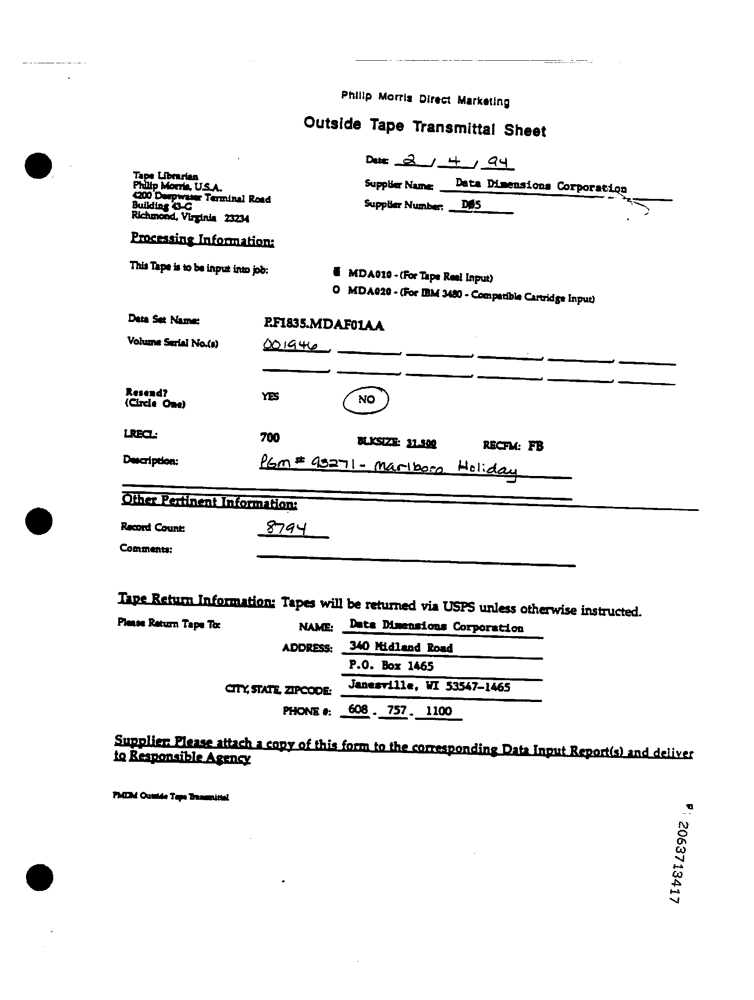 Philip Morris Direct Marketing
Outside Tape Transmittal Sheet
Date: 2 / 4 / 94
Tape Librarian
Philip Morris, U.S.A.
4200 Deepwater Terminal Road
Building 43-C
Richmond, Virginia 23234
Supplier Name: Data Dimensions Corporation
Supplier Number: DØ5
Processing Information:
This Tape is to be input into job:
MDA010 - (For Tape Reel Input)
O MDA020 - (For IBM 3480 - Compatible Cartridge Input)
Data Set Name: P.F1835.MDAF01AA
Volume Serial No.(s) 001946
Resend? YES NO
(Circle One)
LRECL: 700 BLKSIZE: 31,500 RECFM: FB
Description: PGm # 93271 - Marlboro Holiday
Other Pertinent Information:
Record Count: 8794
Comments:
Tape Return Information: Tapes will be returned via USPS unless otherwise instructed.
Please Return Tape To: NAME: Data Dimensions Corporation
ADDRESS: 340 Midland Road
P.O. Box 1465
CITY, STATE, ZIPCODE: Janesville, WI 53547-1465
PHONE #: 608 . 757 . 1100
Supplier: Please attach a copy of this form to the corresponding Data Input Report(s) and deliver
to Responsible Agency
PMDM Outside Tape Transmittal
2063713417